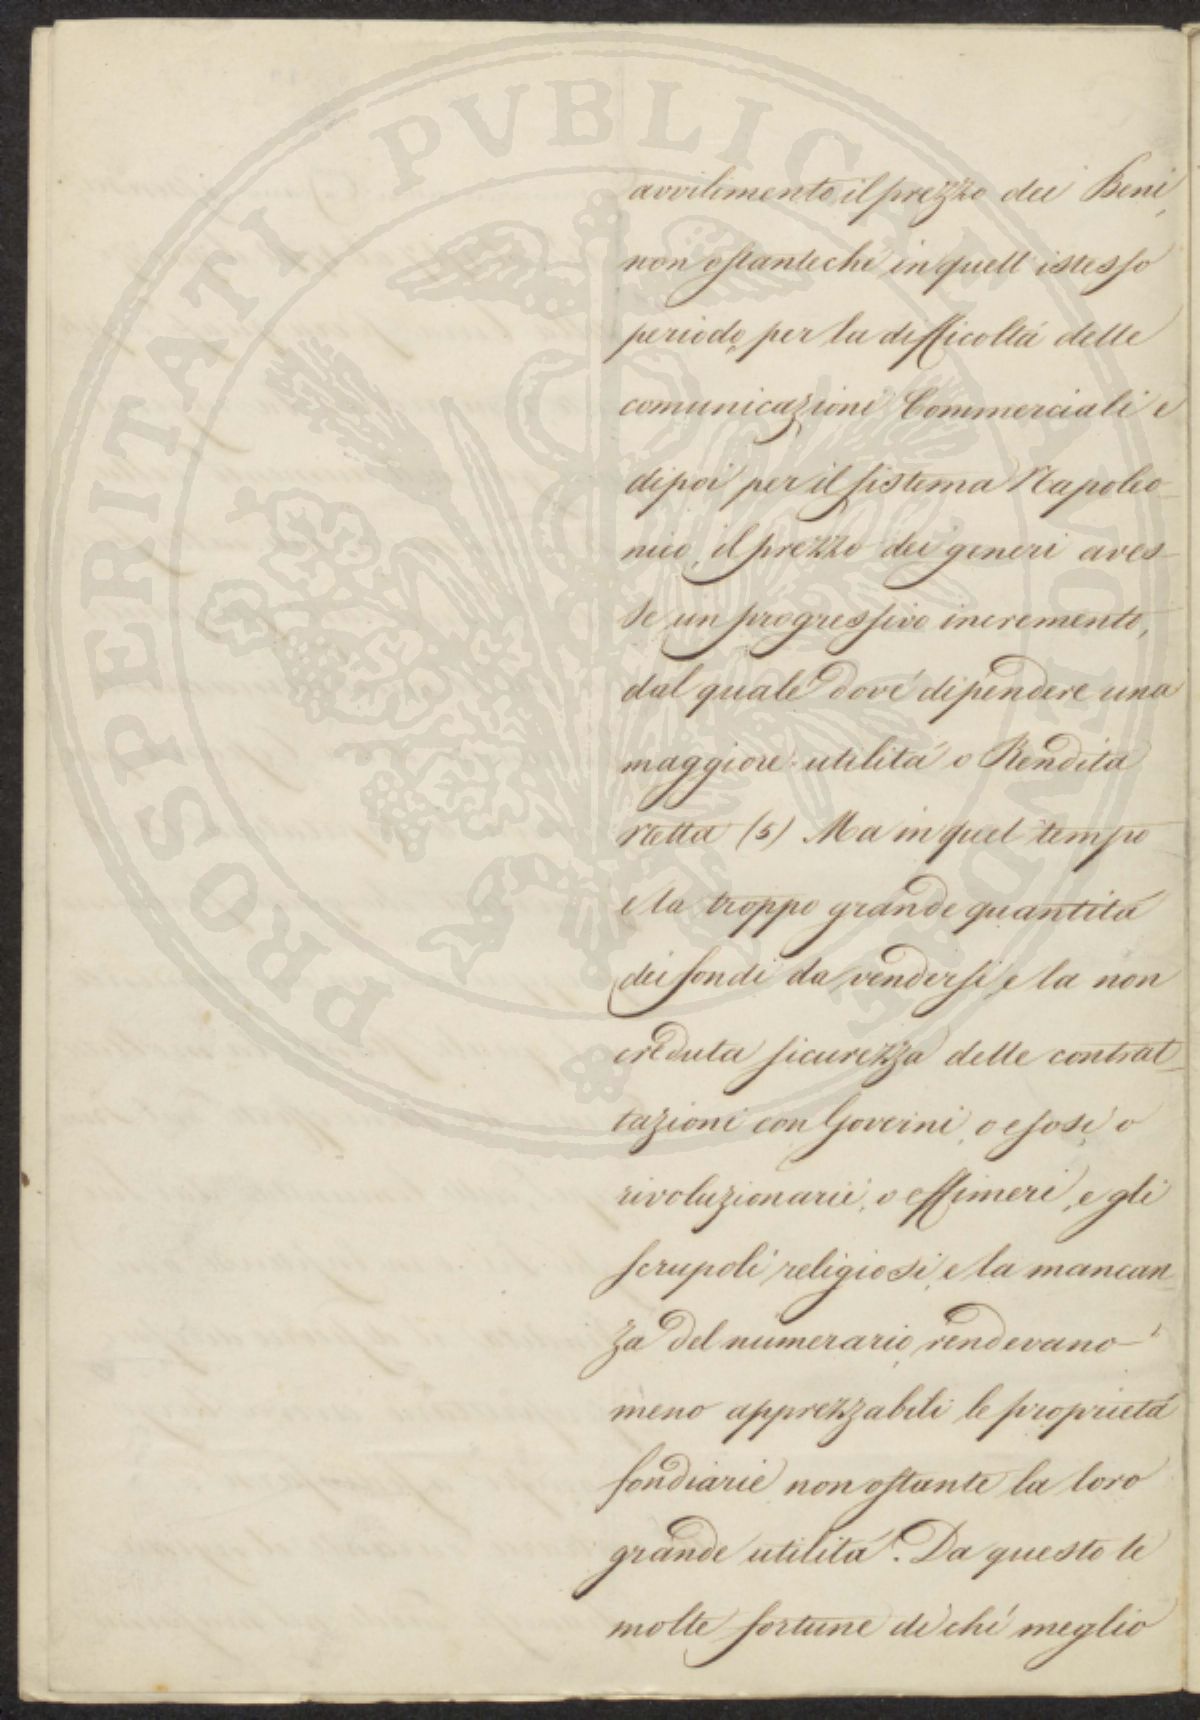 PROSPERITATI PVBLICAE AVGENDAE
avvilimento il prezzo dei Beni,
non ostanteché in quell' istesso
periodo, per la difficoltá delle
comunicazioni Commerciali e
dipoi per il sistema Napoleo-
nico, il prezzo dei generi aves-
se un progressivo incremento,
dal quale dové dipendere una
maggiore utilitá o Rendita
Netta (5) Ma in quel tempo
e la troppo grande quantitá
dei fondi da vendersi, e la non
creduta sicurezza delle contrat-
tazioni con Governi, o esosi, o
rivoluzionarii, o effimeri, e gli
scrupoli religiosi, e la mancan-
za del numerario, rendevano
meno apprezzabili le proprietá
fondiarie non ostante la loro
grande utilitá. Da questo le
molte fortune di chi meglio